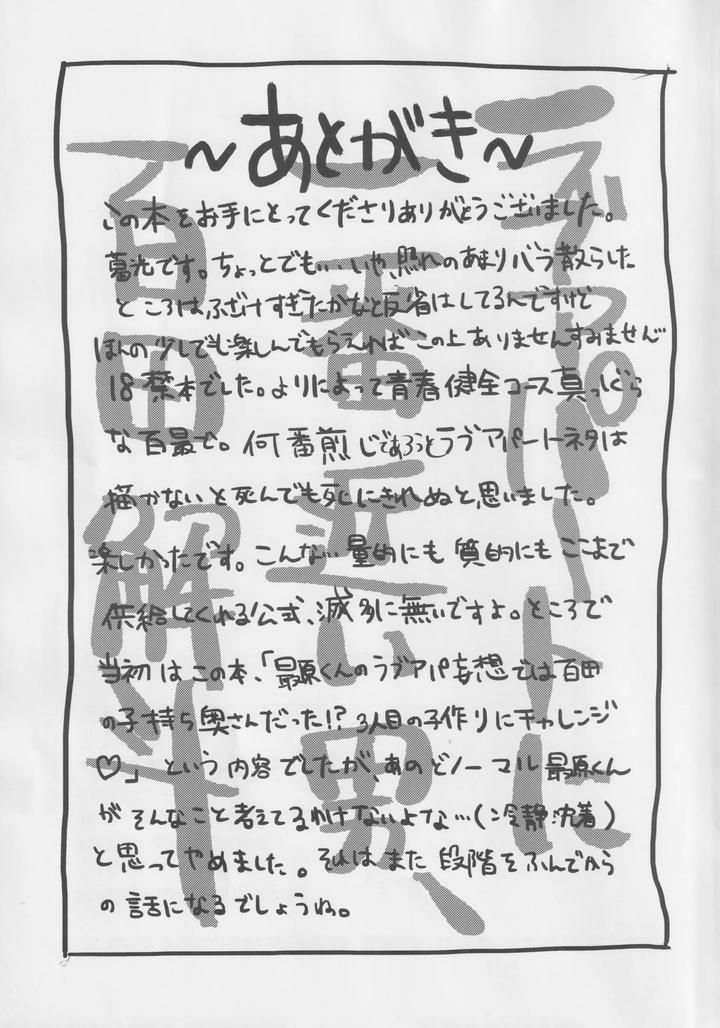 ～あとがき～
この本をお手にとってくださりありがとうございました。
葛光です。ちょっとでも…いや、照れのあまりバラ散らした
ところはふざけすぎたかなと反省はしてるんですけど
ほんの少しでも楽しんでもらえればこの上ありませんすみません
18禁本でした。よりによって青春健全コース真っしぐら
な百最で。何番煎じであろうとラブアパートネタは
描かないと死んでも死にきれぬと思いました。
楽しかったです。こんな…量的にも質的にもここまで
供給してくれる公式、滅多に無いですよ。ところで
当初はこの本、「最原くんのラブアパ妄想では百田
の子持ち奥さんだった!?3人目の子作りにチャレンジ
♡」という内容でしたが、あのどノーマル最原くん
がそんなこと考えてるわけないよな…(冷静沈着)
と思ってやめました。それはまた段階をふんでから
の話になるでしょうね。
ラブアパートに
一番近い男、
百田解斗